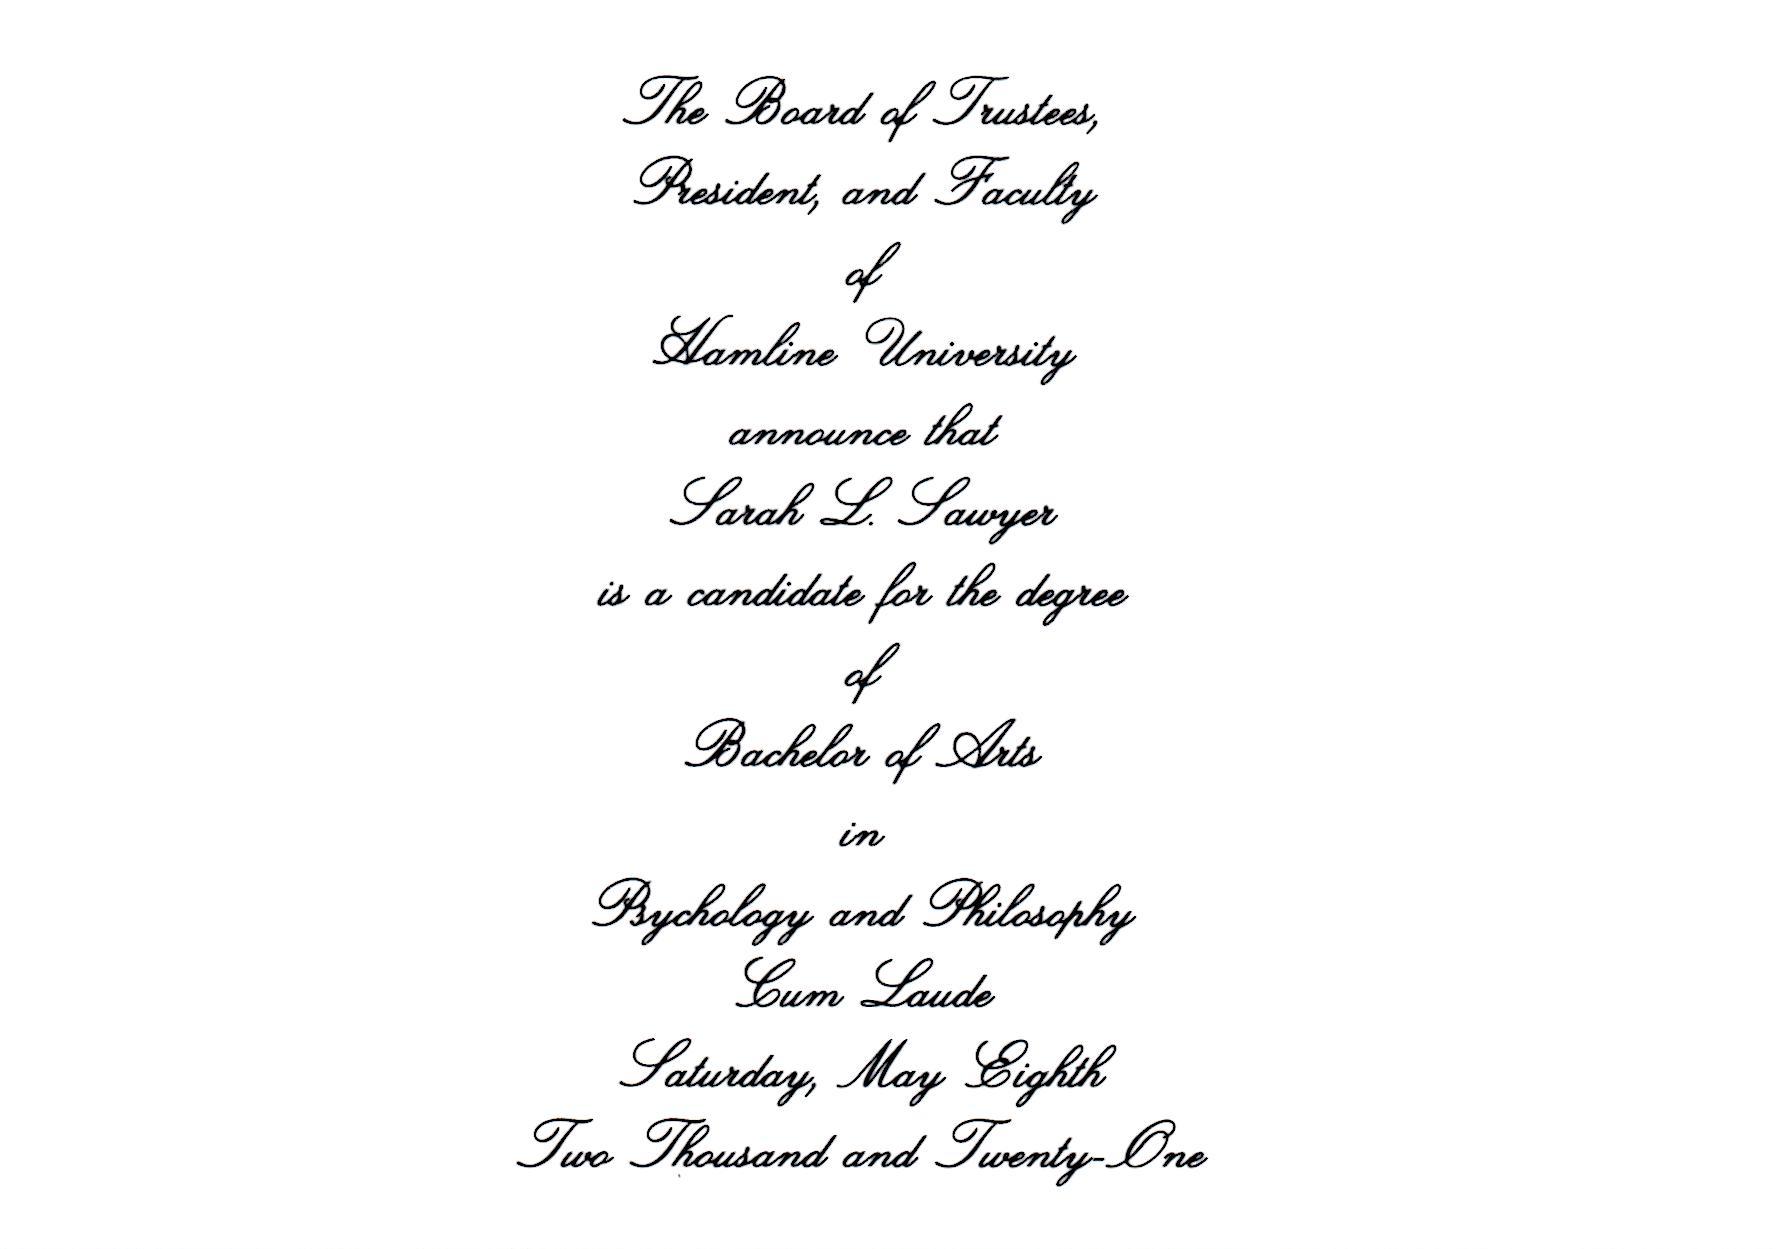 The Board of Trustees,
President, and Faculty
of
Hamline University
announce that
Sarah L. Sawyer
is a candidate for the degree
of
Bachelor of Arts
in
Psychology and Philosophy
Cum Laude
Saturday, May Eighth
Two Thousand and Twenty-One